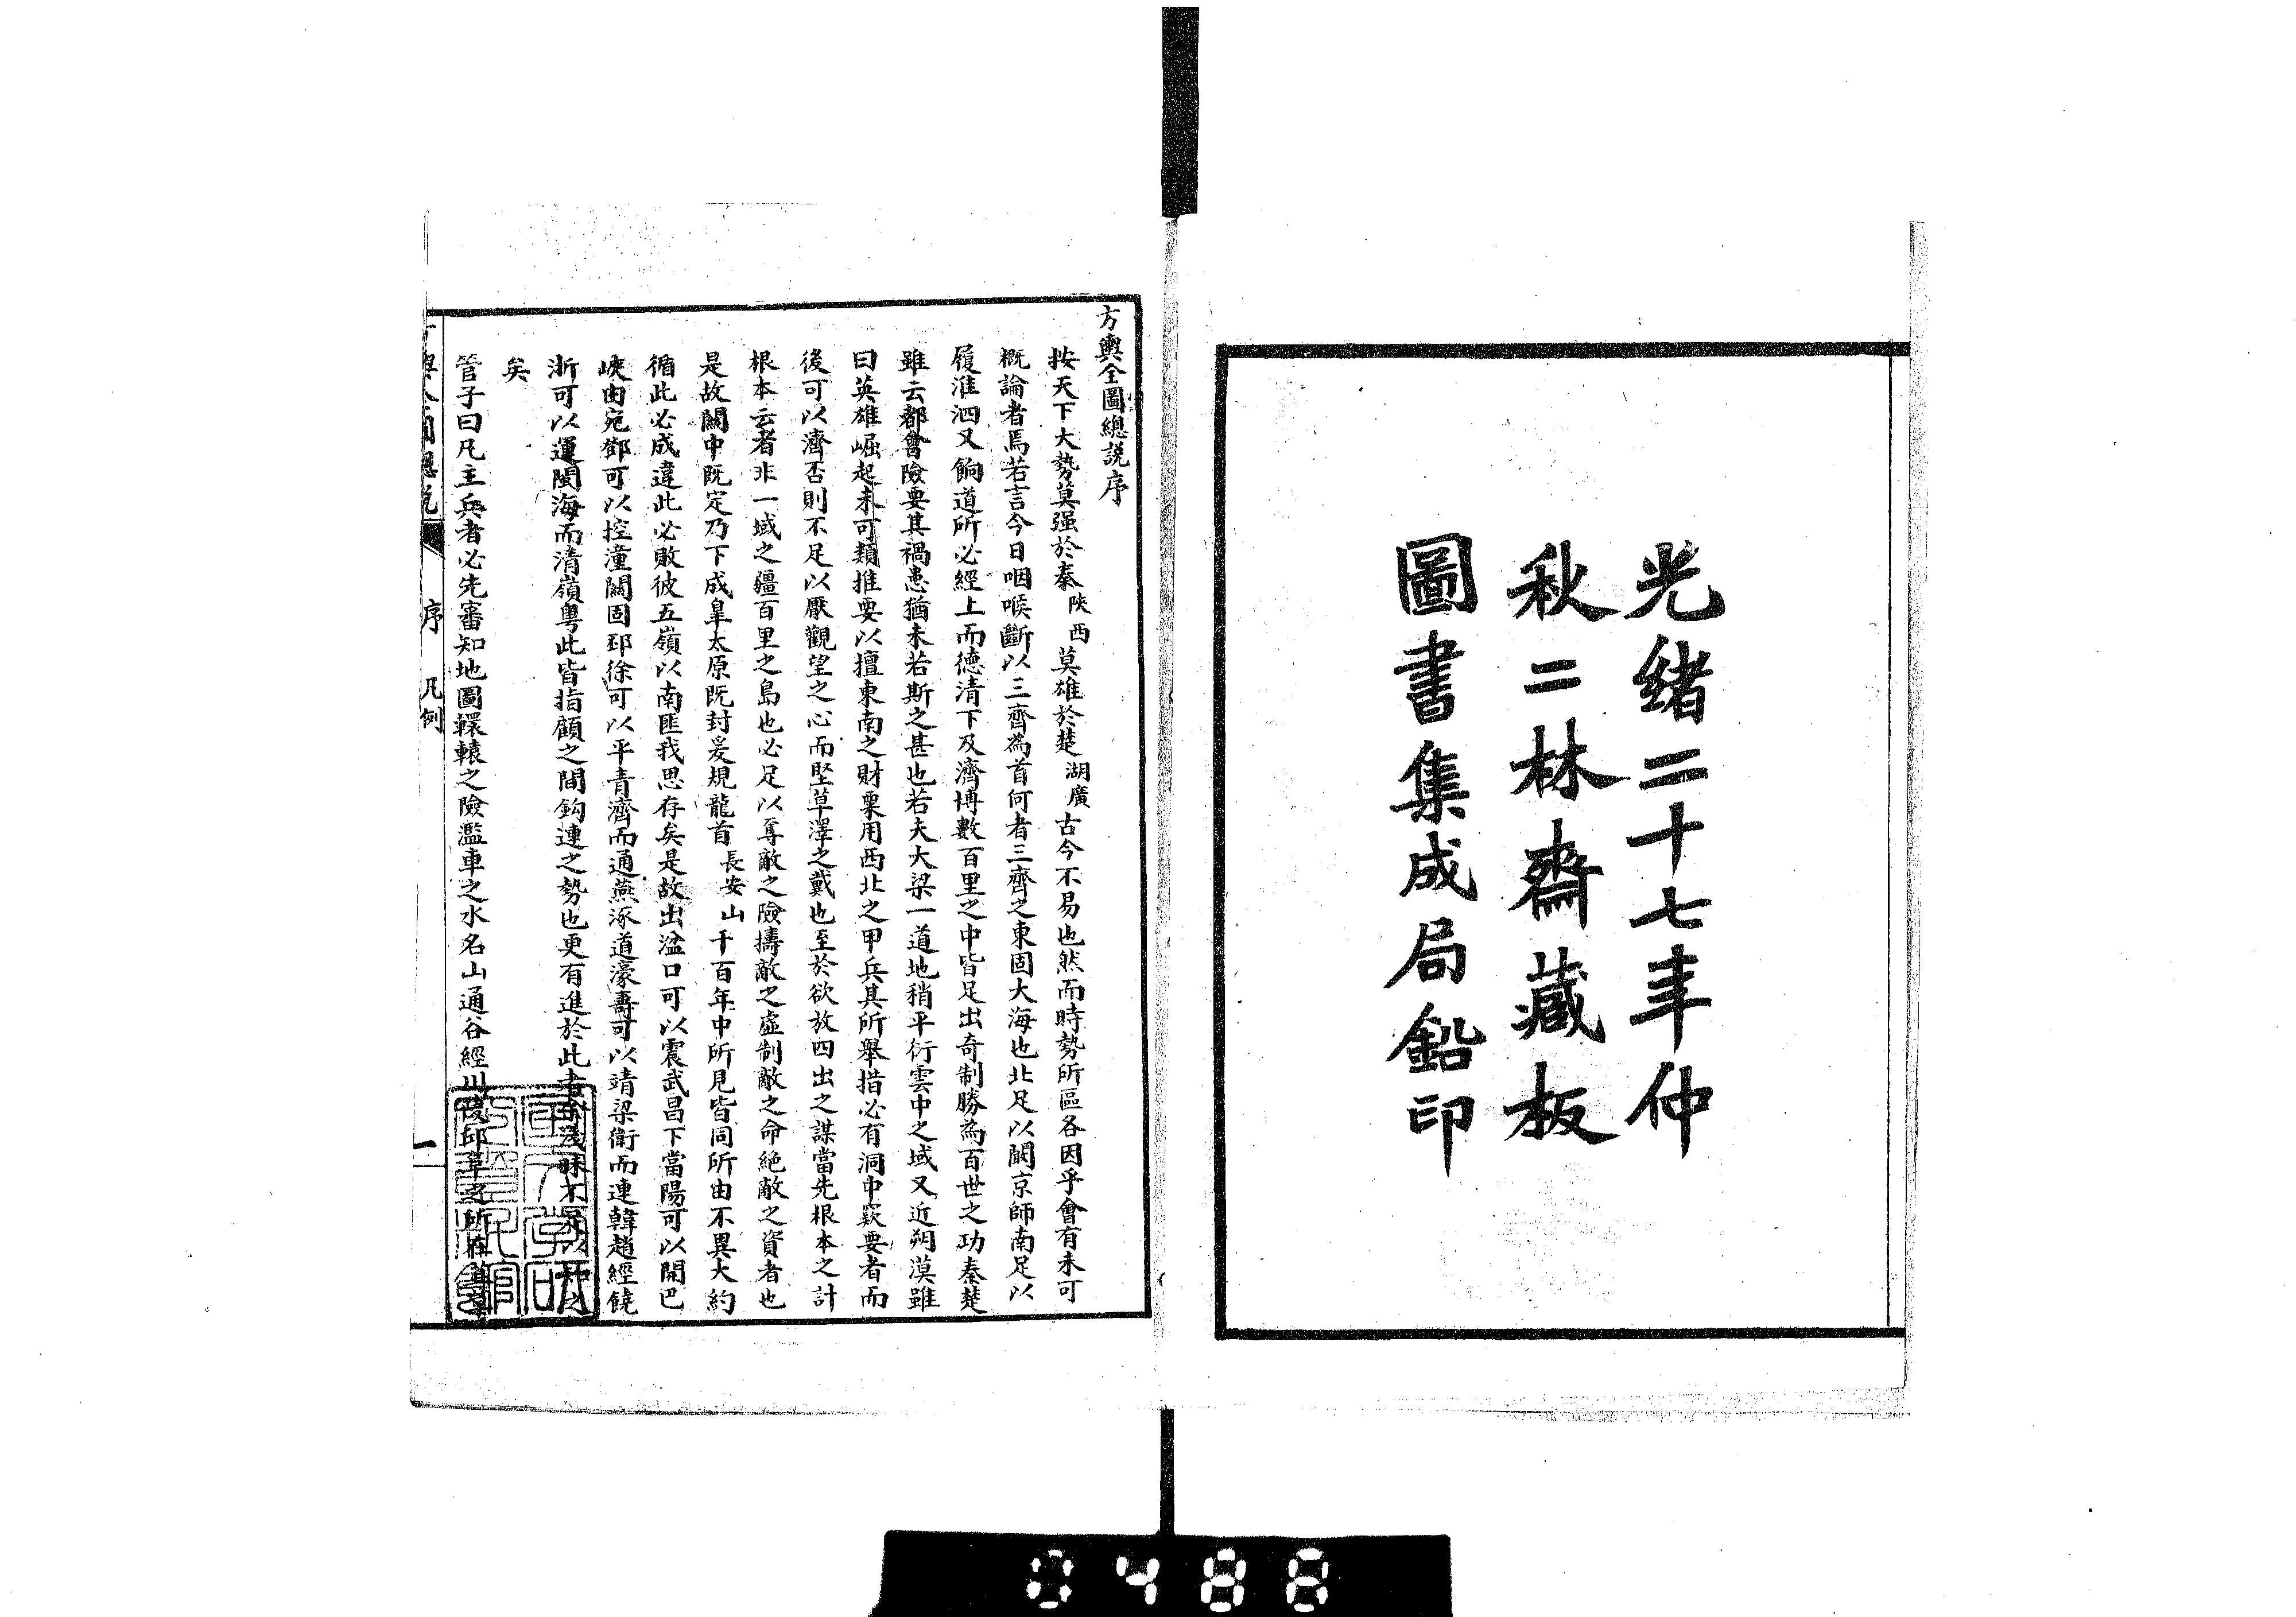 光緒二十七年仲
秋二林齋藏板
圖書集成局鉛印
方輿全圖總說序
按天下大勢莫强於秦陝西莫雄於楚湖廣古今不易也然而時勢所區各因乎會有未可
概論者焉若言今日咽喉斷以三齊為首何者三齊之東固大海也北足以闚京師南足以
履淮泗又餉道所必經上而德清下及濟博數百里之中皆足出奇制勝為百世之功秦楚
雖云都會險要其禍患猶未若斯之甚也若夫大梁一道地稍平衍雲中之域又近朔漠雖
曰英雄崛起未可類推要以擅東南之財粟用西北之甲兵其所舉措必有洞中窾要者而
後可以濟否則不足以厭觀望之心而堅草澤之戴也至於欲放四出之謀當先根本之計
根本云者非一域之疆百里之島也必足以奪敵之險擣敵之虛制敵之命絶敵之資者也
是故關中既定乃下成皐太原既封爰規龍首長安山千百年中所見皆同所由不異大約
循此必成違此必敗彼五嶺以南匪我思存矣是故出湓口可以震武昌下當陽可以開巴
峽由宛鄧可以控潼關固邳徐可以平青濟而通燕涿道濠壽可以靖梁衛而連韓趙經饒
浙可以運閩海而清嶺粤此皆指顧之間鈎連之勢也更有進於此者淺昧不足以知之
矣
管子曰凡主兵者必先審知地圖轘轅之險濫車之水名山通谷經川陵邱阜之所在苴草
方輿全圖總說 序 凡例 一
0488